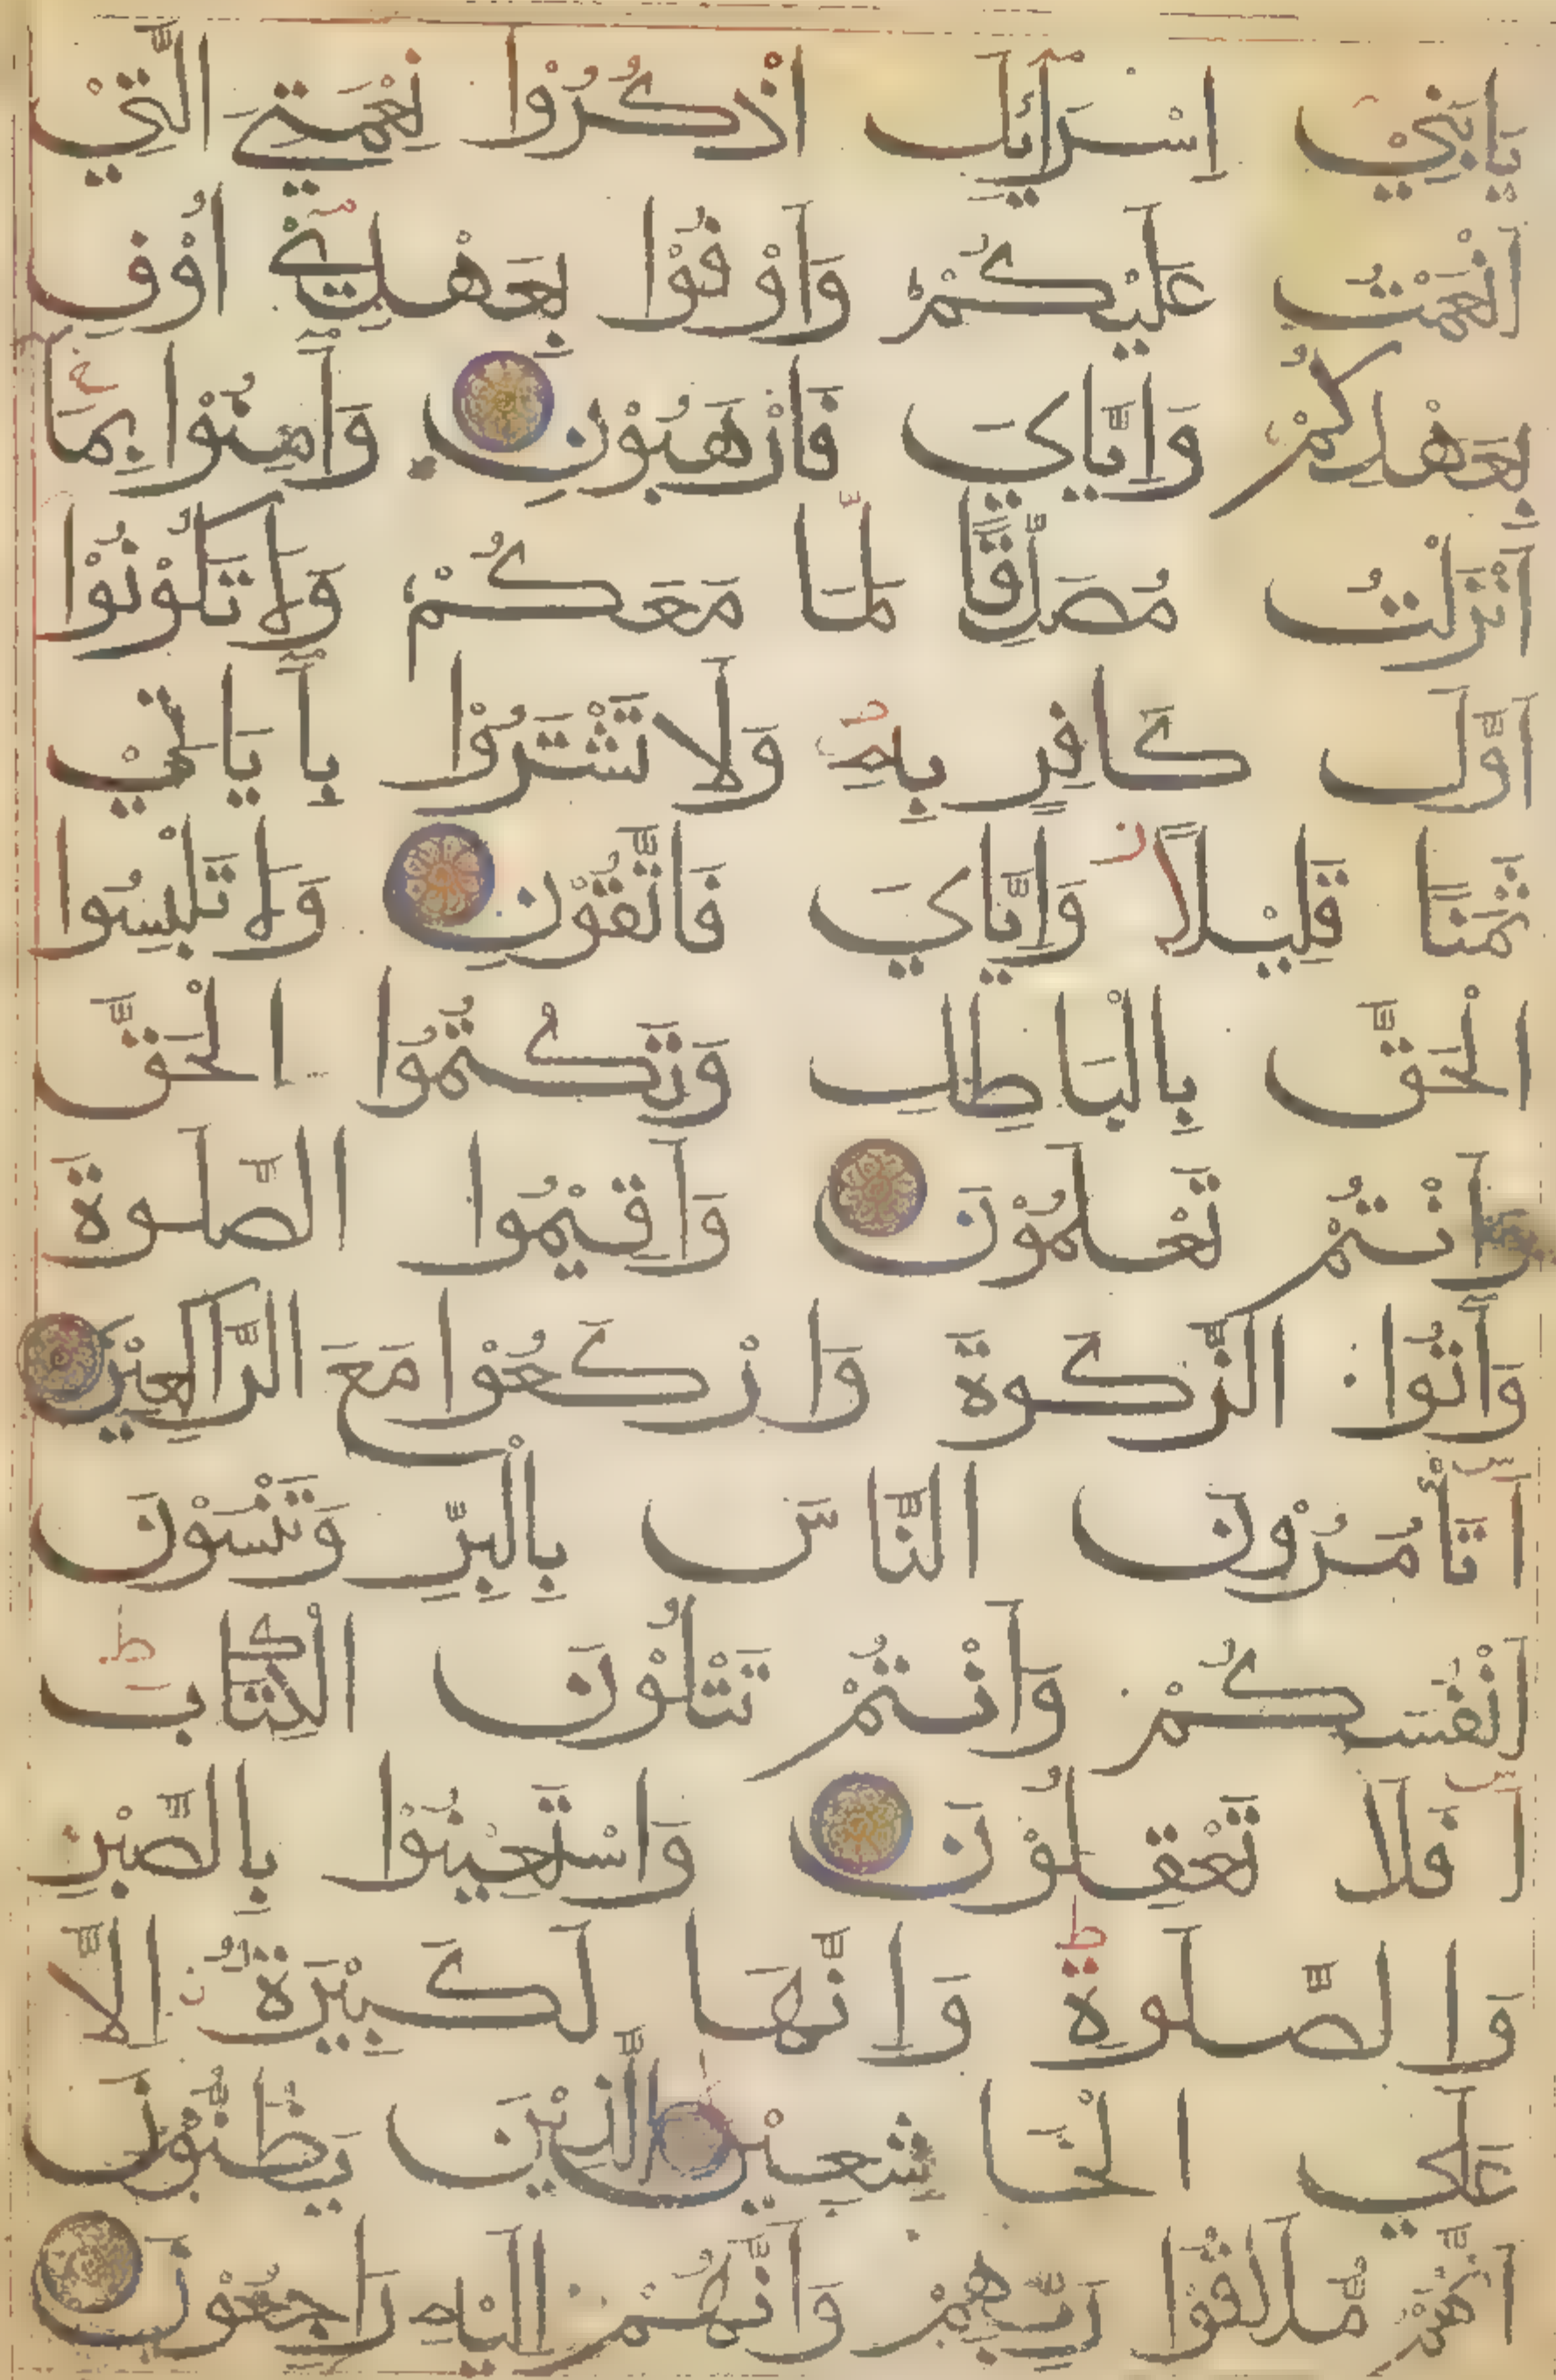 يَابَنِيْ اِسْرَآئِيلَ اذْكُرُوْا نِعْمَتِيَ الَّتِيْ
اَنْعَمْتُ عَلَيْكُمْ وَاَوْفُوْا بِعَهْدِيْٓ اُوْفِ
بِعَهْدِكُمْ وَاِيَّايَ فَارْهَبُوْنِ وَاٰمِنُوْا بِمَآ
اَنْزَلْتُ مُصَدِّقًا لِّمَا مَعَكُمْ وَلَا تَكُوْنُوْا
اَوَّلَ كَافِرٍ بِهٖ وَلَا تَشْتَرُوْا بِاٰيَاتِيْ
ثَمَنًا قَلِيْلًا وَاِيَّايَ فَاتَّقُوْنِ وَلَا تَلْبِسُوا
الْحَقَّ بِالْبَاطِلِ وَتَكْتُمُوا الْحَقَّ
وَاَنْتُمْ تَعْلَمُوْنَ وَاَقِيْمُوا الصَّلٰوةَ
وَاٰتُوا الزَّكٰوةَ وَارْكَعُوْا مَعَ الرَّاكِعِيْنَ
اَتَاْمُرُوْنَ النَّاسَ بِالْبِرِّ وَتَنْسَوْنَ
اَنْفُسَكُمْ وَاَنْتُمْ تَتْلُوْنَ الْكِتَابَ
اَفَلَا تَعْقِلُوْنَ وَاسْتَعِيْنُوْا بِالصَّبْرِ
وَالصَّلٰوةِ وَاِنَّهَا لَكَبِيْرَةٌ اِلَّا
عَلَي الْخَاشِعِيْنَ الَّذِيْنَ يَظُنُّوْنَ
اَنَّهُمْ مُّلَاقُوْا رَبِّهِمْ وَاَنَّهُمْ اِلَيْهِ رَاجِعُوْنَ